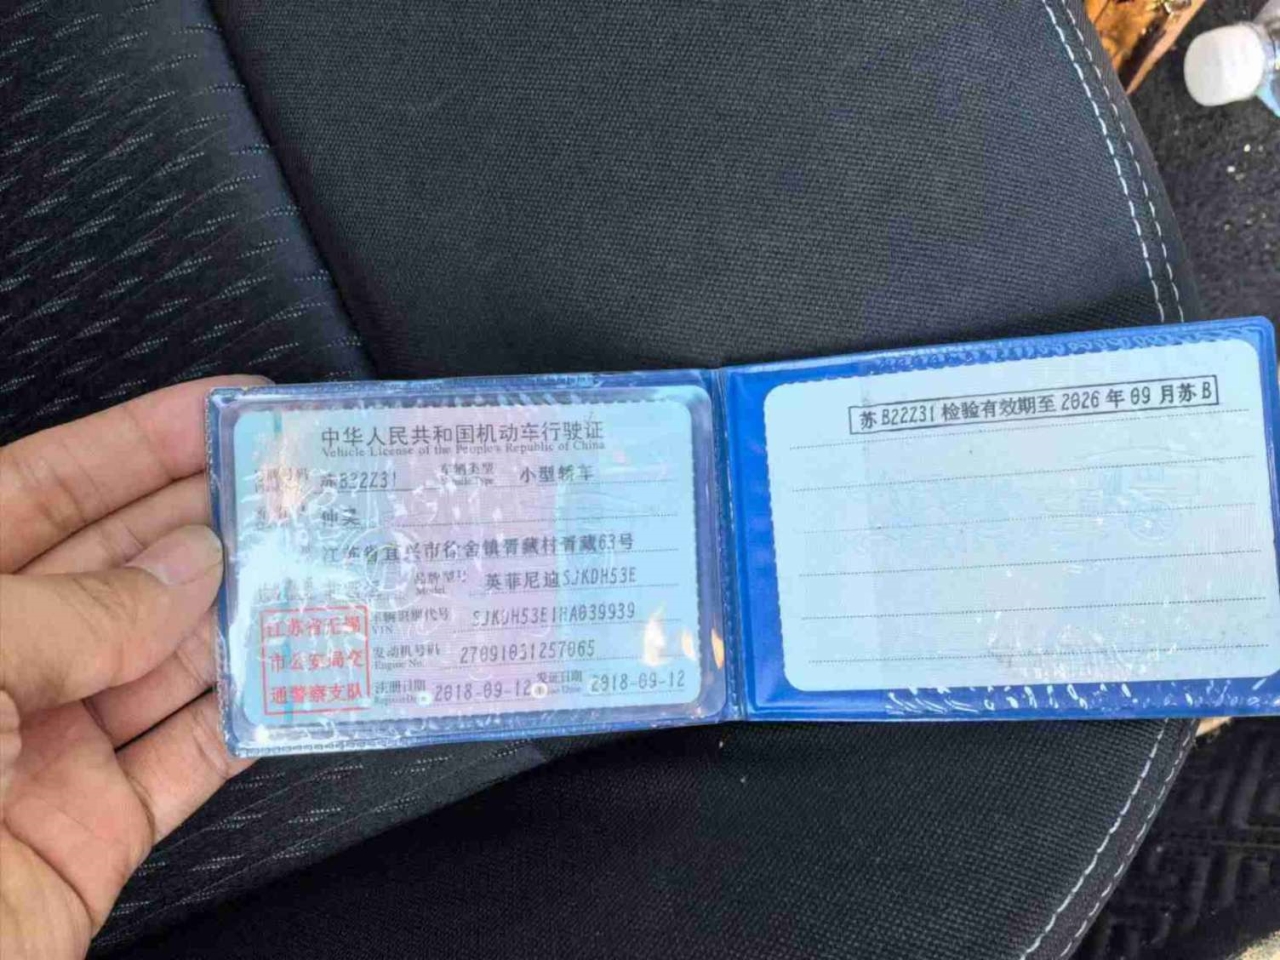 中华人民共和国机动车行驶证
Vehicle License of the People's Republic of China
号码 苏B22Z31 车辆类型 小型轿车
江苏省宜兴市徐舍镇胥藏村胥藏63号
品牌型号 英菲尼迪SJKDH53E
Model
车辆识别代号
VIN
发动机号码 27091031257065
Engine No.
注册日期 2018-09-12 发证日期 2018-09-12
Register Date Issue Date
江苏省无锡
市公安局交
通警察支队
苏B22Z31 检验有效期至 2026 年 09 月苏 B